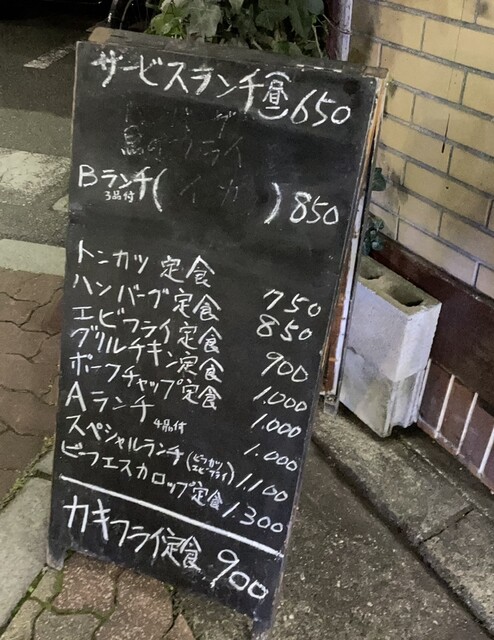 サービスランチ(昼)650
魚のフライ
Bランチ(イカ)850
3品付
トンカツ定食 750
ハンバーグ定食 850
エビフライ定食 900
グリルチキン定食 1.000
ポークチャップ定食 1.000
Aランチ 4品付 1.000
スペシャルランチ(ビーフカツ エビフライ)1100
ビーフエスカロップ定食 1.300
カキフライ定食 900